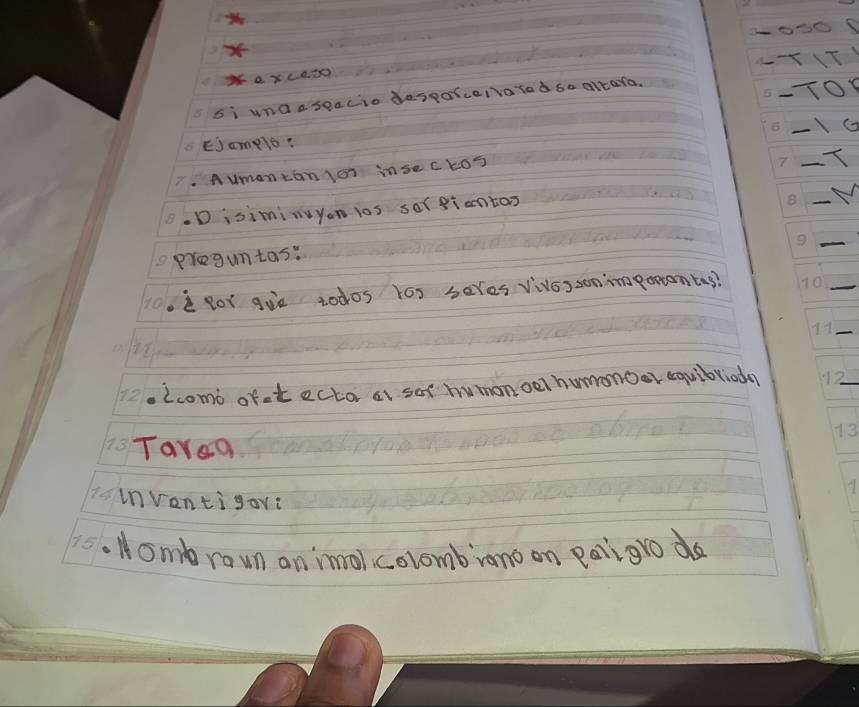 * exceso
si una espacio desporcellared se altara.
Ejemplo:
. Aumentan los insectos
. Disiminuyen los serpientas
preguntas:
. ¿ por qué todos los seres vivos son importantes?
. ¿como afet ecta al ser human oel humano el equilbrio dn
Tarea
inventigar:
. Nombra un animal colombiano en peligro de
-oso
-TIT
-TO
-IG
-T
-M